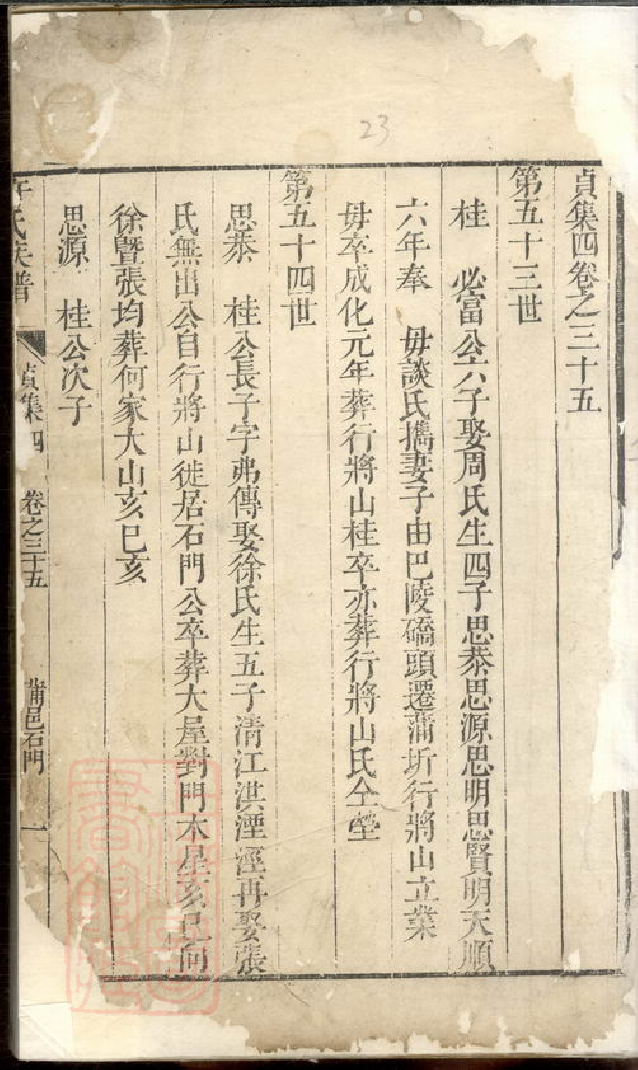 23
貞集四卷之三十五
第五十三世
桂 必富公六子娶周氏生四子思恭思源思明思賢明天順
六年奉 毋談氏攜妻子由巴陵磽頭遷蒲圻行將山立業
毋卒成化元年葬行將山桂卒亦葬行將山氏仝塋
第五十四世
思恭 桂公長子字弗傳娶徐氏生五子清江淇湮涇再娶張
氏無出公自行將山徙居石門公卒葬大屋對門木星亥巳向
徐暨張均葬何家大山亥巳亥
思源 桂公次子
氏族譜 貞集四 卷之三十五 蒲邑石門 一